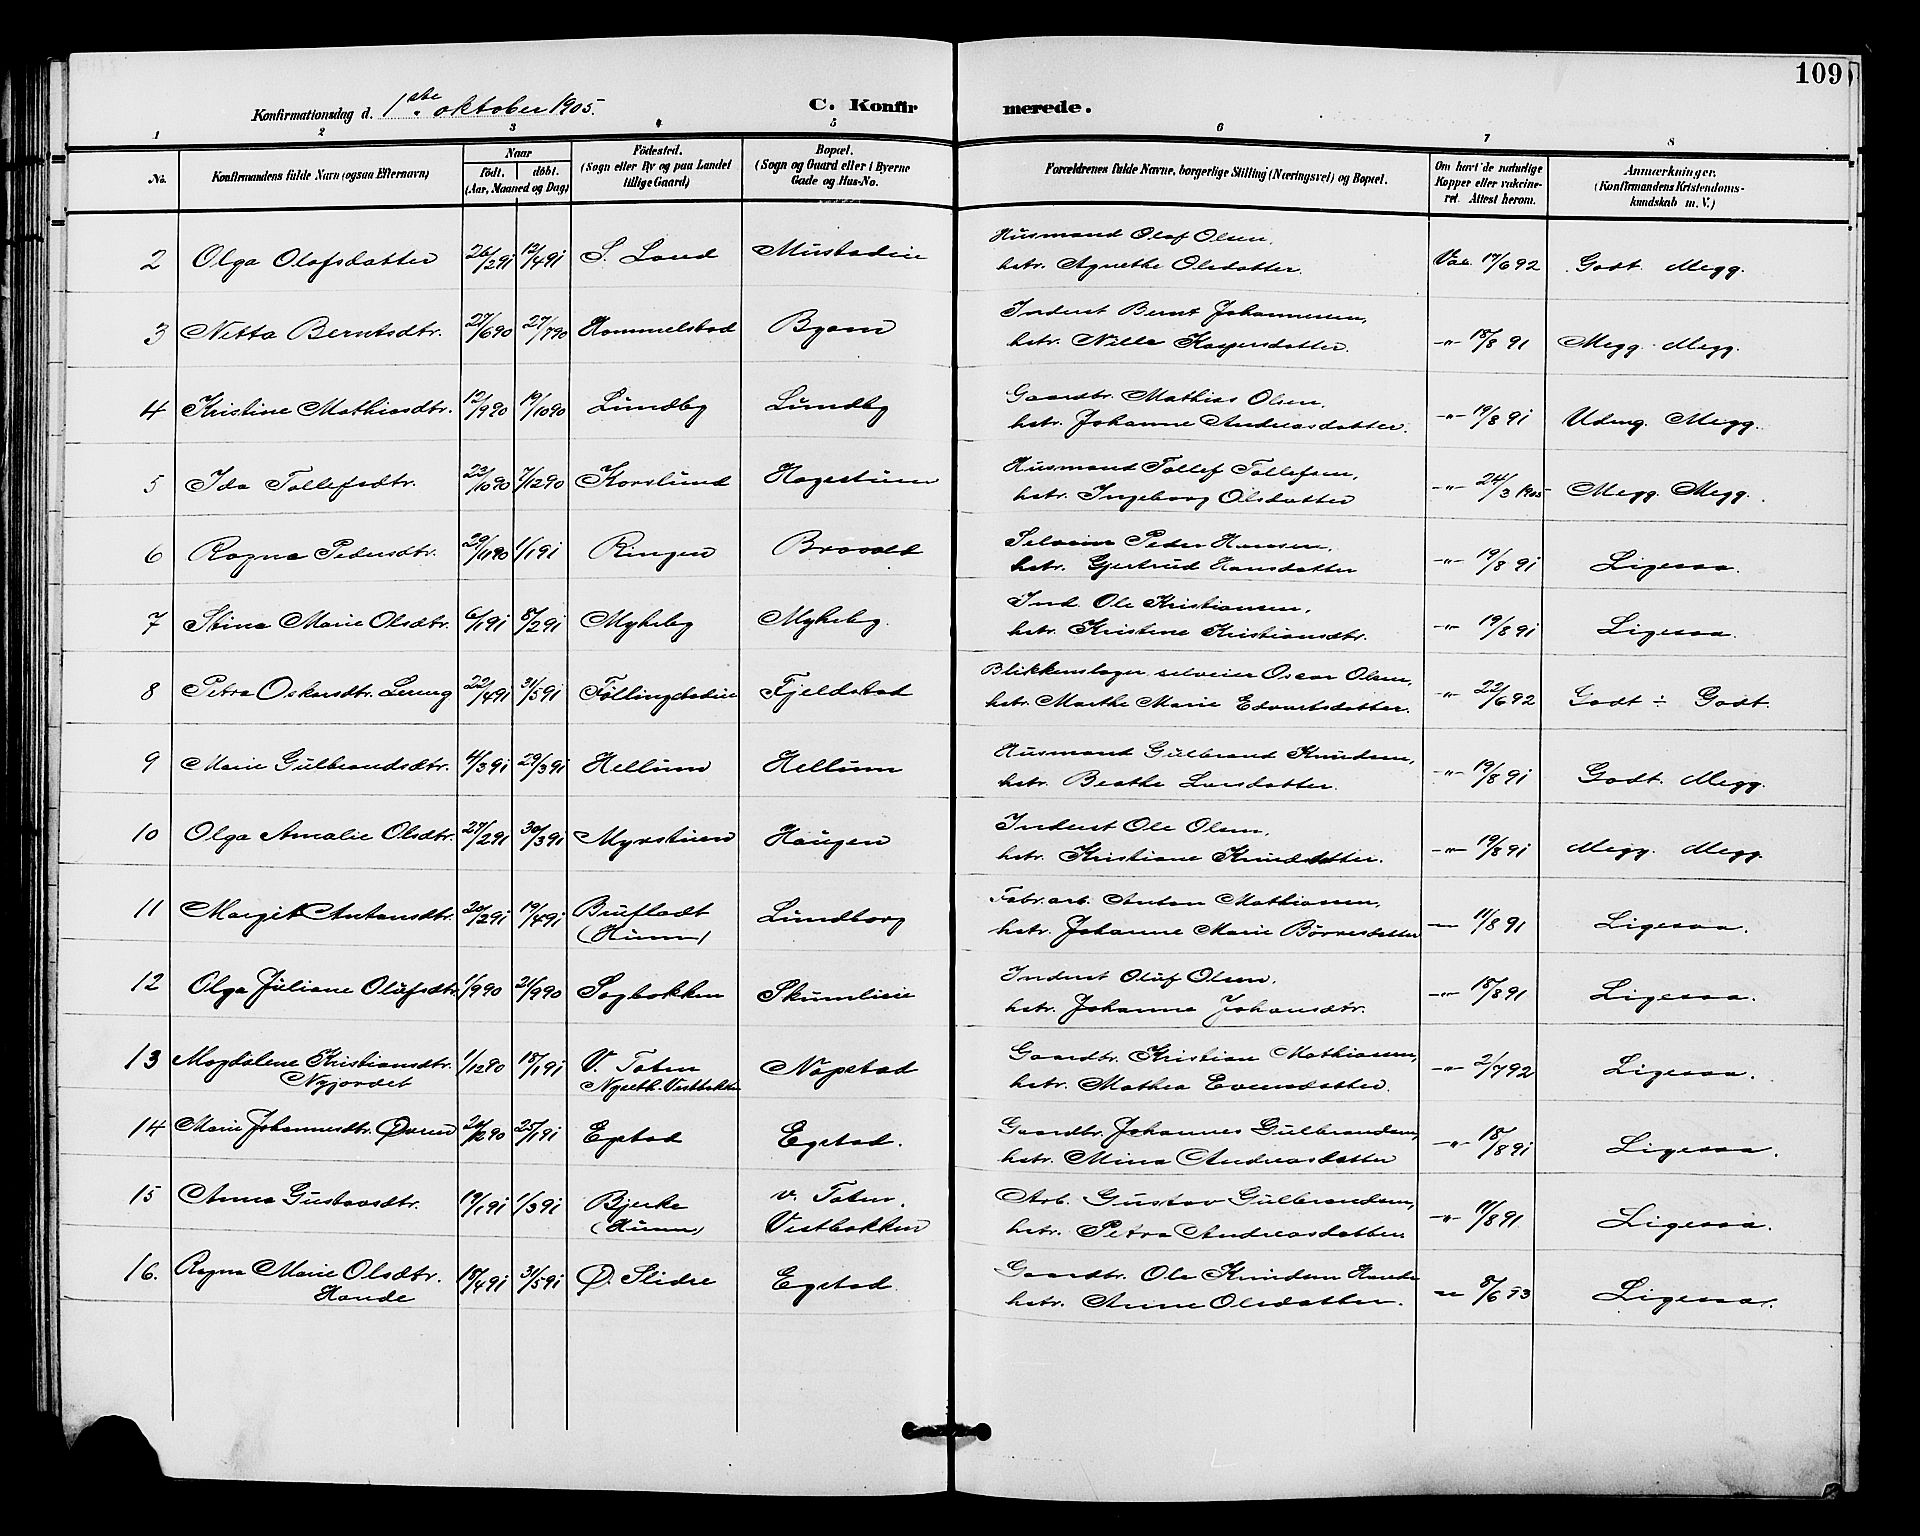 109
Konfirmationsdag d. 1ste oktober 1905.
C. Konfirmerede.
1 2 3 4 5 6 7 8
No.
Konfirmandens fulde Navn (ogsaa Efternavn)
Naar
Født. døbt.
(Aar, Maaned og Dag)
Fødested.
(Sogn eller By og paa Landet
tillige Gaard)
Bopæl.
(Sogn og Gaard eller i Byerne
Gade og Hus-No.
Forældrenes fulde Navne, borgerlige Stilling (Næringsvei) og Bopæl.
Om havt de naturlige
Kopper eller vakcine-
ret. Attest herom.
Anmærkninger.
(Konfirmandens Kristendoms-
kundskab m. V.)
2 Olga Olafsdatter 26/2 91 12/4 91 S. Land Mustadeie Husmand Olaf Olsen,
hstr. Agnethe Olsdatter. Vac. 17/6 92 Godt. Megg.
3 Netta Berntsdtr. 27/6 90 27/7 90 Hammelstad Byom Inderst Bernt Johannesen,
hstr. Nille Kaspersdatter. -"- 18/8 91 Megg. Megg.
4 Kristine Mathiasdtr. 12/9 90 19/10 90 Lundby Lundby Gaardbr. Mathias Olsen,
hstr. Johanne Andreasdatter. -"- 19/8 91 Udmg. Megg.
5 Ida Tollefsdtr. 22/10 90 7/12 90 Korslund Hagestuen Husmand Tollef Tollefsen,
hstr. Ingeborg Olsdatter -"- 24/3 1905 Megg. Megg.
6 Ragna Pedersdtr. 29/11 90 1/1 91 Ringen Bravold Selveier Peder Hansen,
hstr. Gjertrud Hansdatter -"- 19/8 91 Ligesaa.
7 Stina Marie Olsdtr. 6/1 91 8/2 91 Mykeby Mykeby. Ind. Ole Kristiansen,
hstr. Kristine Kristiansdtr. -"- 19/8 91 Ligesaa.
8 Petra Oskarsdtr. Lereng 22/4 91 31/5 91 Føllingstadeie Fjeldstad Blikkenslager selveier Oscar Olsen,
hstr. Marthe Marie Edvartsdatter. -"- 22/6 92 Godt ÷ Godt.
9 Marie Gulbrandsdtr. 4/3 91 29/3 91 Hellum Hellum Husmand Gulbrand Knudsen,
hstr. Beathe Larsdatter. -"- 19/8 91 Godt. Megg.
10 Olga Amalie Olsdtr. 27/2 91 30/3 91 Myrstuen Haugen Inderst Ole Olsen,
hstr. Kristiane Knudsdatter. -"- 19/8 91 Megg. Megg.
11 Margit Antonsdtr. 20/2 91 19/4 91 Brufladt
(Hunn) Lundborg Fabr.arb. Anton Mathiasen,
hstr. Johanne Marie Börresdatter -"- 11/8 91 Ligesaa.
12 Olga Juliane Olufsdtr. 1/9 90 21/9 90 Sagbakken Skumlieie Inderst Oluf Olsen,
hstr. Johanne Johansdtr. -"- 18/8 91 Ligesaa.
13 Magdalene Kristiansdtr.
Nyjordet 1/12 90 18/1 91 V. Toten
Nyseth. Vestbakken Nøpstad Gaardbr. Kristian Mathiasen,
hstr. Mathea Evensdatter. -"- 2/7 92 Ligesaa.
14 Marie Johannesdtr. Øveren 20/12 90 25/1 91 Egstad Egstad. Gaardbr. Johannes Gulbrandsen,
hstr. Mina Andreasdatter -"- 18/8 91 Ligesaa.
15 Anna Gustavsdtr. 19/1 91 1/3 91 Bjerke
(Hunn) v. Toten.
Vestbakken Arb. Gustav Gulbrandsen,
hstr. Petra Andreasdatter. -"- 11/8 91 Ligesaa.
16. Ragna Marie Olsdtr.
Hande 18/4 91 31/5 91 Ø. Slidre Egstad Gaardbr. Ole Knudsen Hande
hstr. Anne Olsdatter. -"- 8/6 93 Ligesaa.